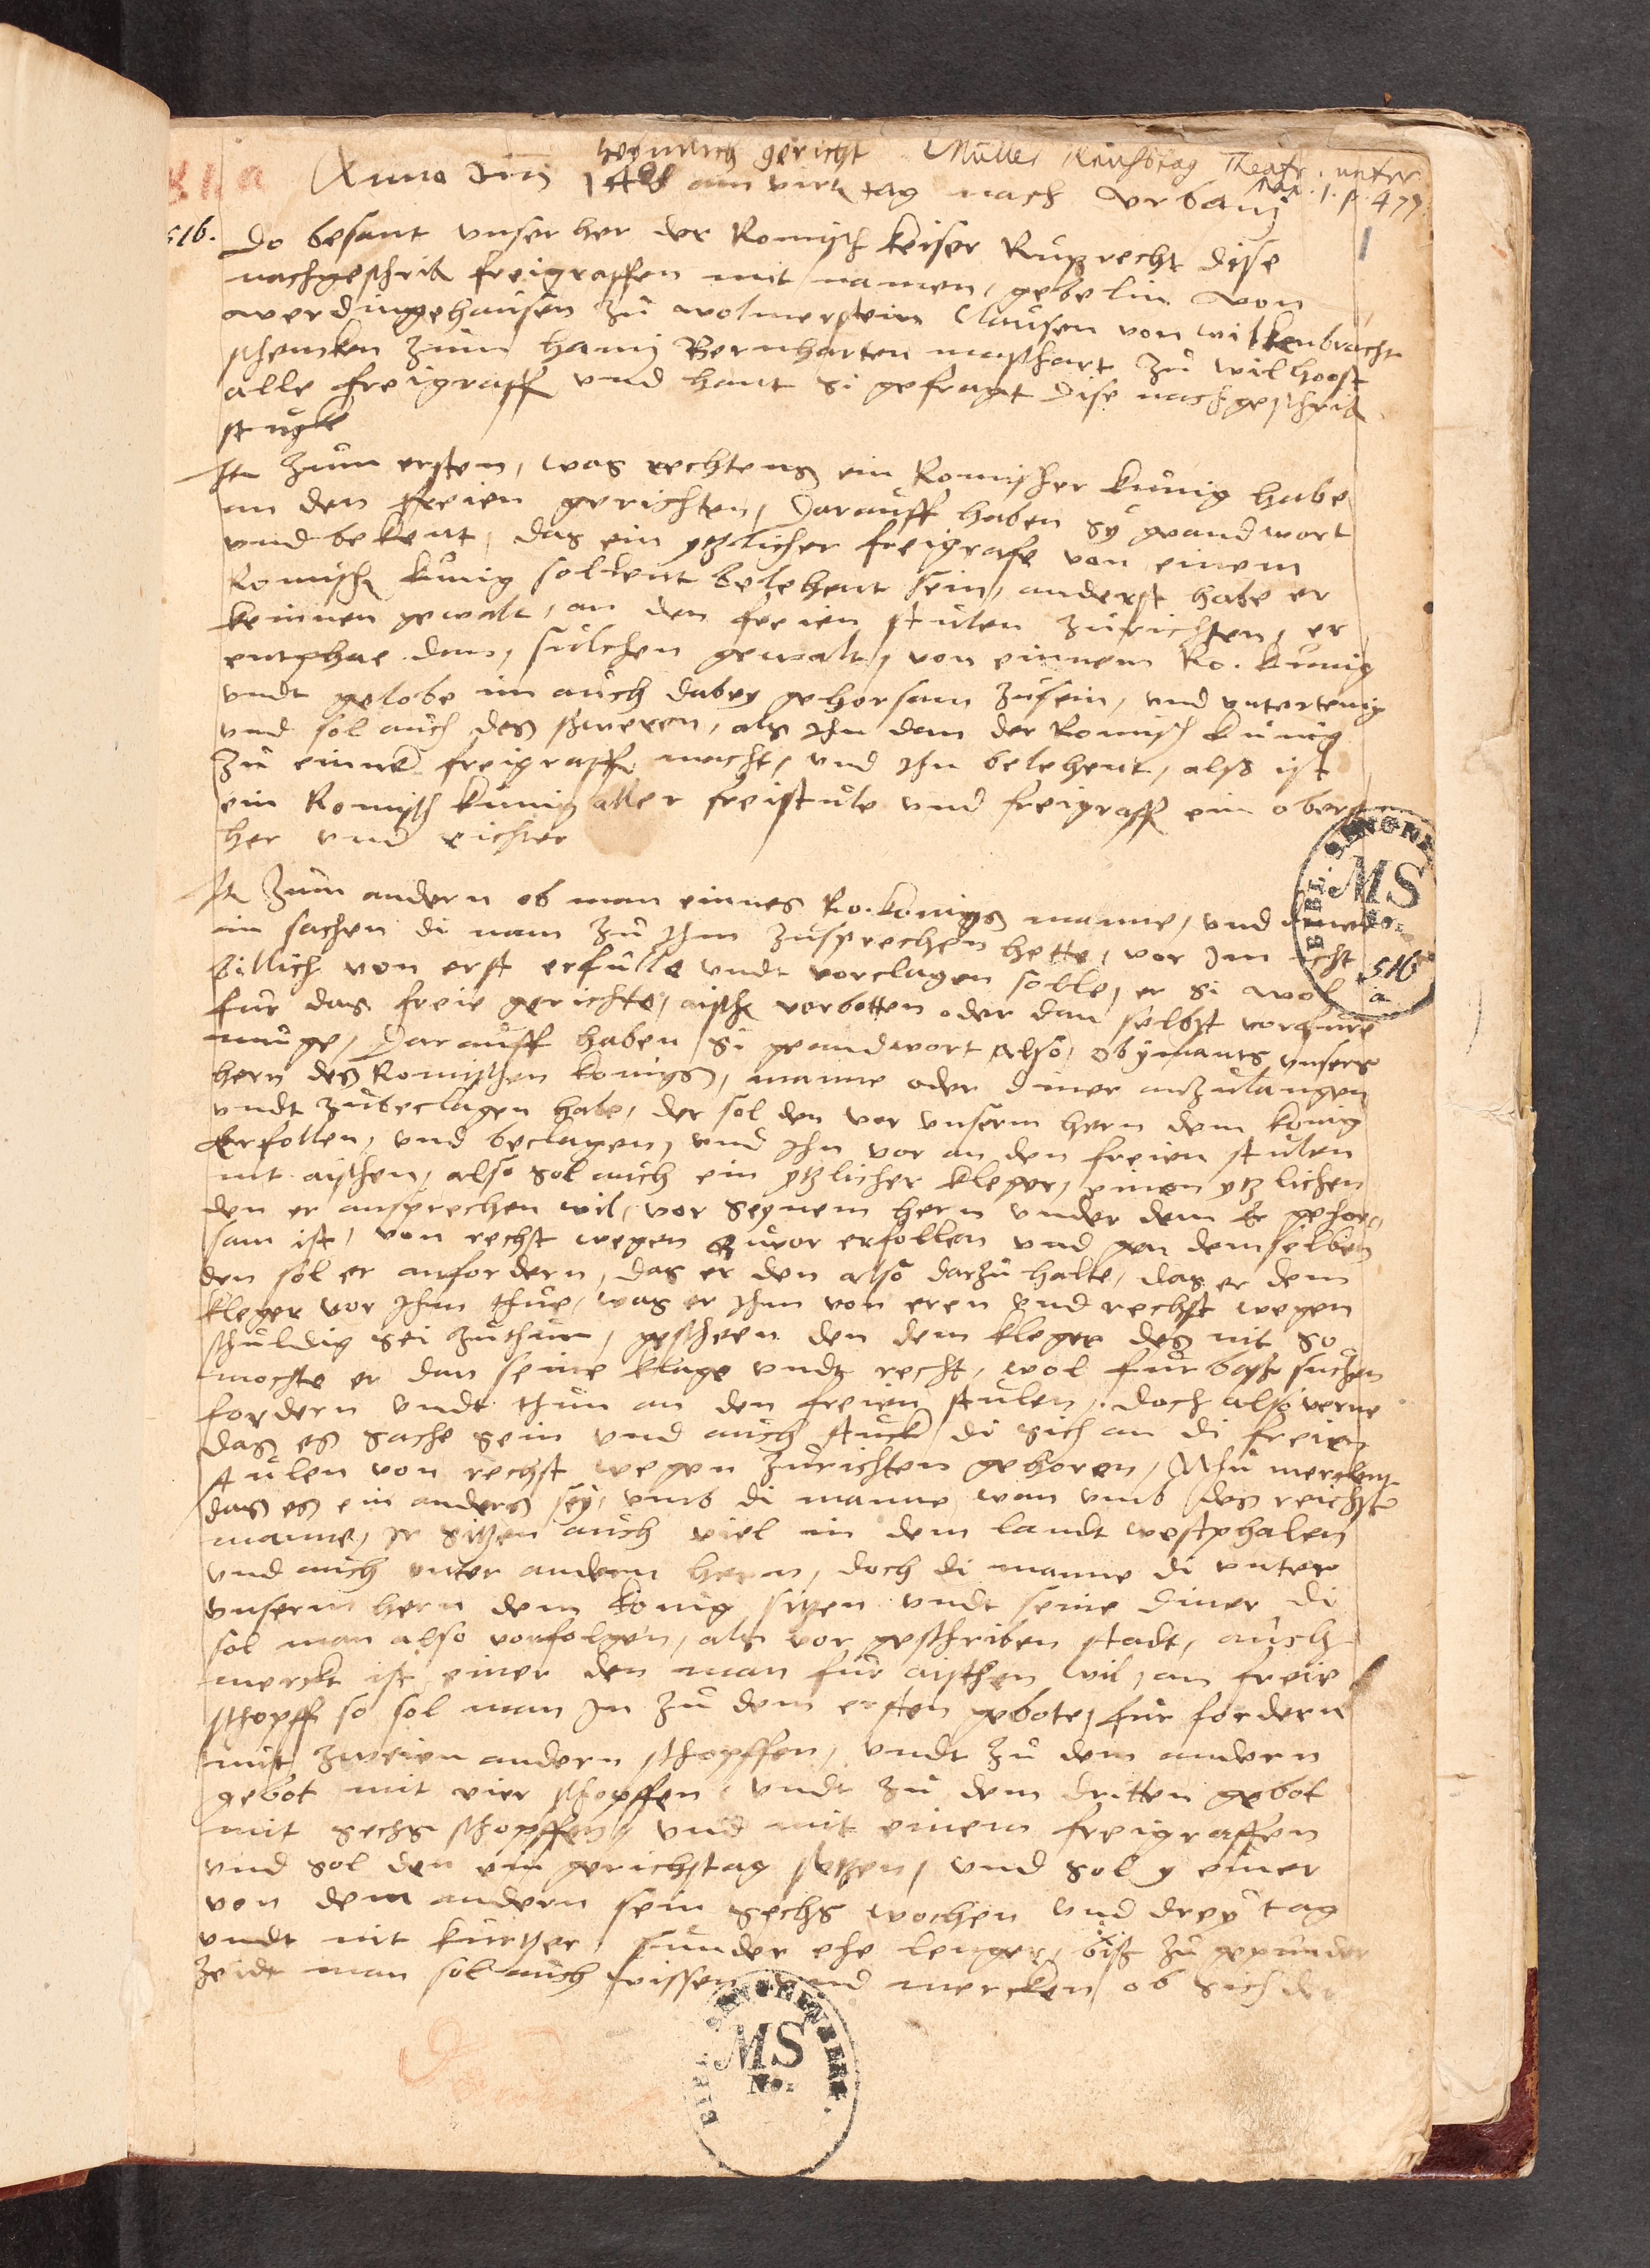 heymlich gericht Müller Reichstag Theatr. unter
Max. 1. p. 479
Anno Dni 1408 am virt tag nach Urbani
1
516.
Do besant unser her der Romisch keiser Ruprecht dise
nachgeschribn freigraffen mit namen, gebelin von
werdingehausen zu wolmerstein Clausen von wilkenbracht
schencken zum hamj Bernharten maschart zu wilhoost
alle freigraff und hant si gefragt dise nachgeschribn
stugke
Itm zum ersten, was rechtens ein Romischer kunig habe
an den freien gerichten, Darauff haben sy geandwort
und bekent, das ein yglicher freigrafe von einem
Romisch kunig sol belehent sein, anderst habe er
keinnen gewalt, an den freien stulen zurichten, er
entphae dan, sulchen gewalt, von einnem Ro. kunig
undt gelobe im auch dabey gehorsam zusein, und untertenig
und sol auch des schweren, als ihn dan der Romisch kunig
zu einnem freigraff macht, und ihn belehent, also ist
ein Romisch kunig aller freistule und freigraff ein oberst
her und richter
Itm zum andern ob man einnes Ro. konigs manne, und diner
in sachen di man zu ihm zusprechen hette, vor im icht
billich von erst erfulle undt vorclagen solle, er si wol
fur das freie gerichte, aisch vorbotten oder dan selbst vorfure
muge, Darauff haben si geandwort also, ob ymants unsers
hern des Romischen konigs, manne oder diner anzulangen
undt zubeclagen habe, der sol den vor unserm hern dem konig
Erfollen, und beclagen, und ihn vor an den freien stulen
nit aischen, also sol auch ein yglicher kleger, einen yglichen
den er ansprechen wil, vor seynem hern under dem Er gehor-
sam ist, von rechst wegen zuvor erfollen und gen demselben
den sol er anfordern, das er den also darzu halte, das er dem
kleger vor ihm thue, was er ihm von eren und rechst wegen
schuldig sei zuthun, gescheen den dem kleger des nit so
mochte er dan seine klage undt recht, wol fur bas suchen
fordern undt thun an den freien stulen, doch also verne
das es sache sein und auch stuck di sich an di freien
stulen von rechst wegen zurichten gehoren, Nhu merckent
das es ein anders sey, umb di manne, wan umb des reichs
manne, Ir sitzen auch viel in dem landt westphalen
und auch unter andern hern, doch di manne di unter
unserm hern dem konig sitzen undt seine diner di
sol man also vorfolgen, als vor geschriben stadt, auch
merckt ist einer den man fur aischen wil, an freie
schopff so sol man In zu dem ersten gebote, fur fordern
mit zweien andern schopffen, undt zu dem andern
gebot mit vier schopffen, undt zu dem dritten gebot
mit sechs schopffen, und mit einem freigraffen
und sol den ein gerichstag setzen, und sol y einer
von dem andern sein sechs wochen und drey tag
undt nit kurtzer, sunder ehe lenger, biss zu gepunder
zeidt man sol auch wissen und mercken ob sich der
BIBL. SENCKENBERG.
MS
No.
516
a
BIBL. SENCKENBERG.
MS
No.